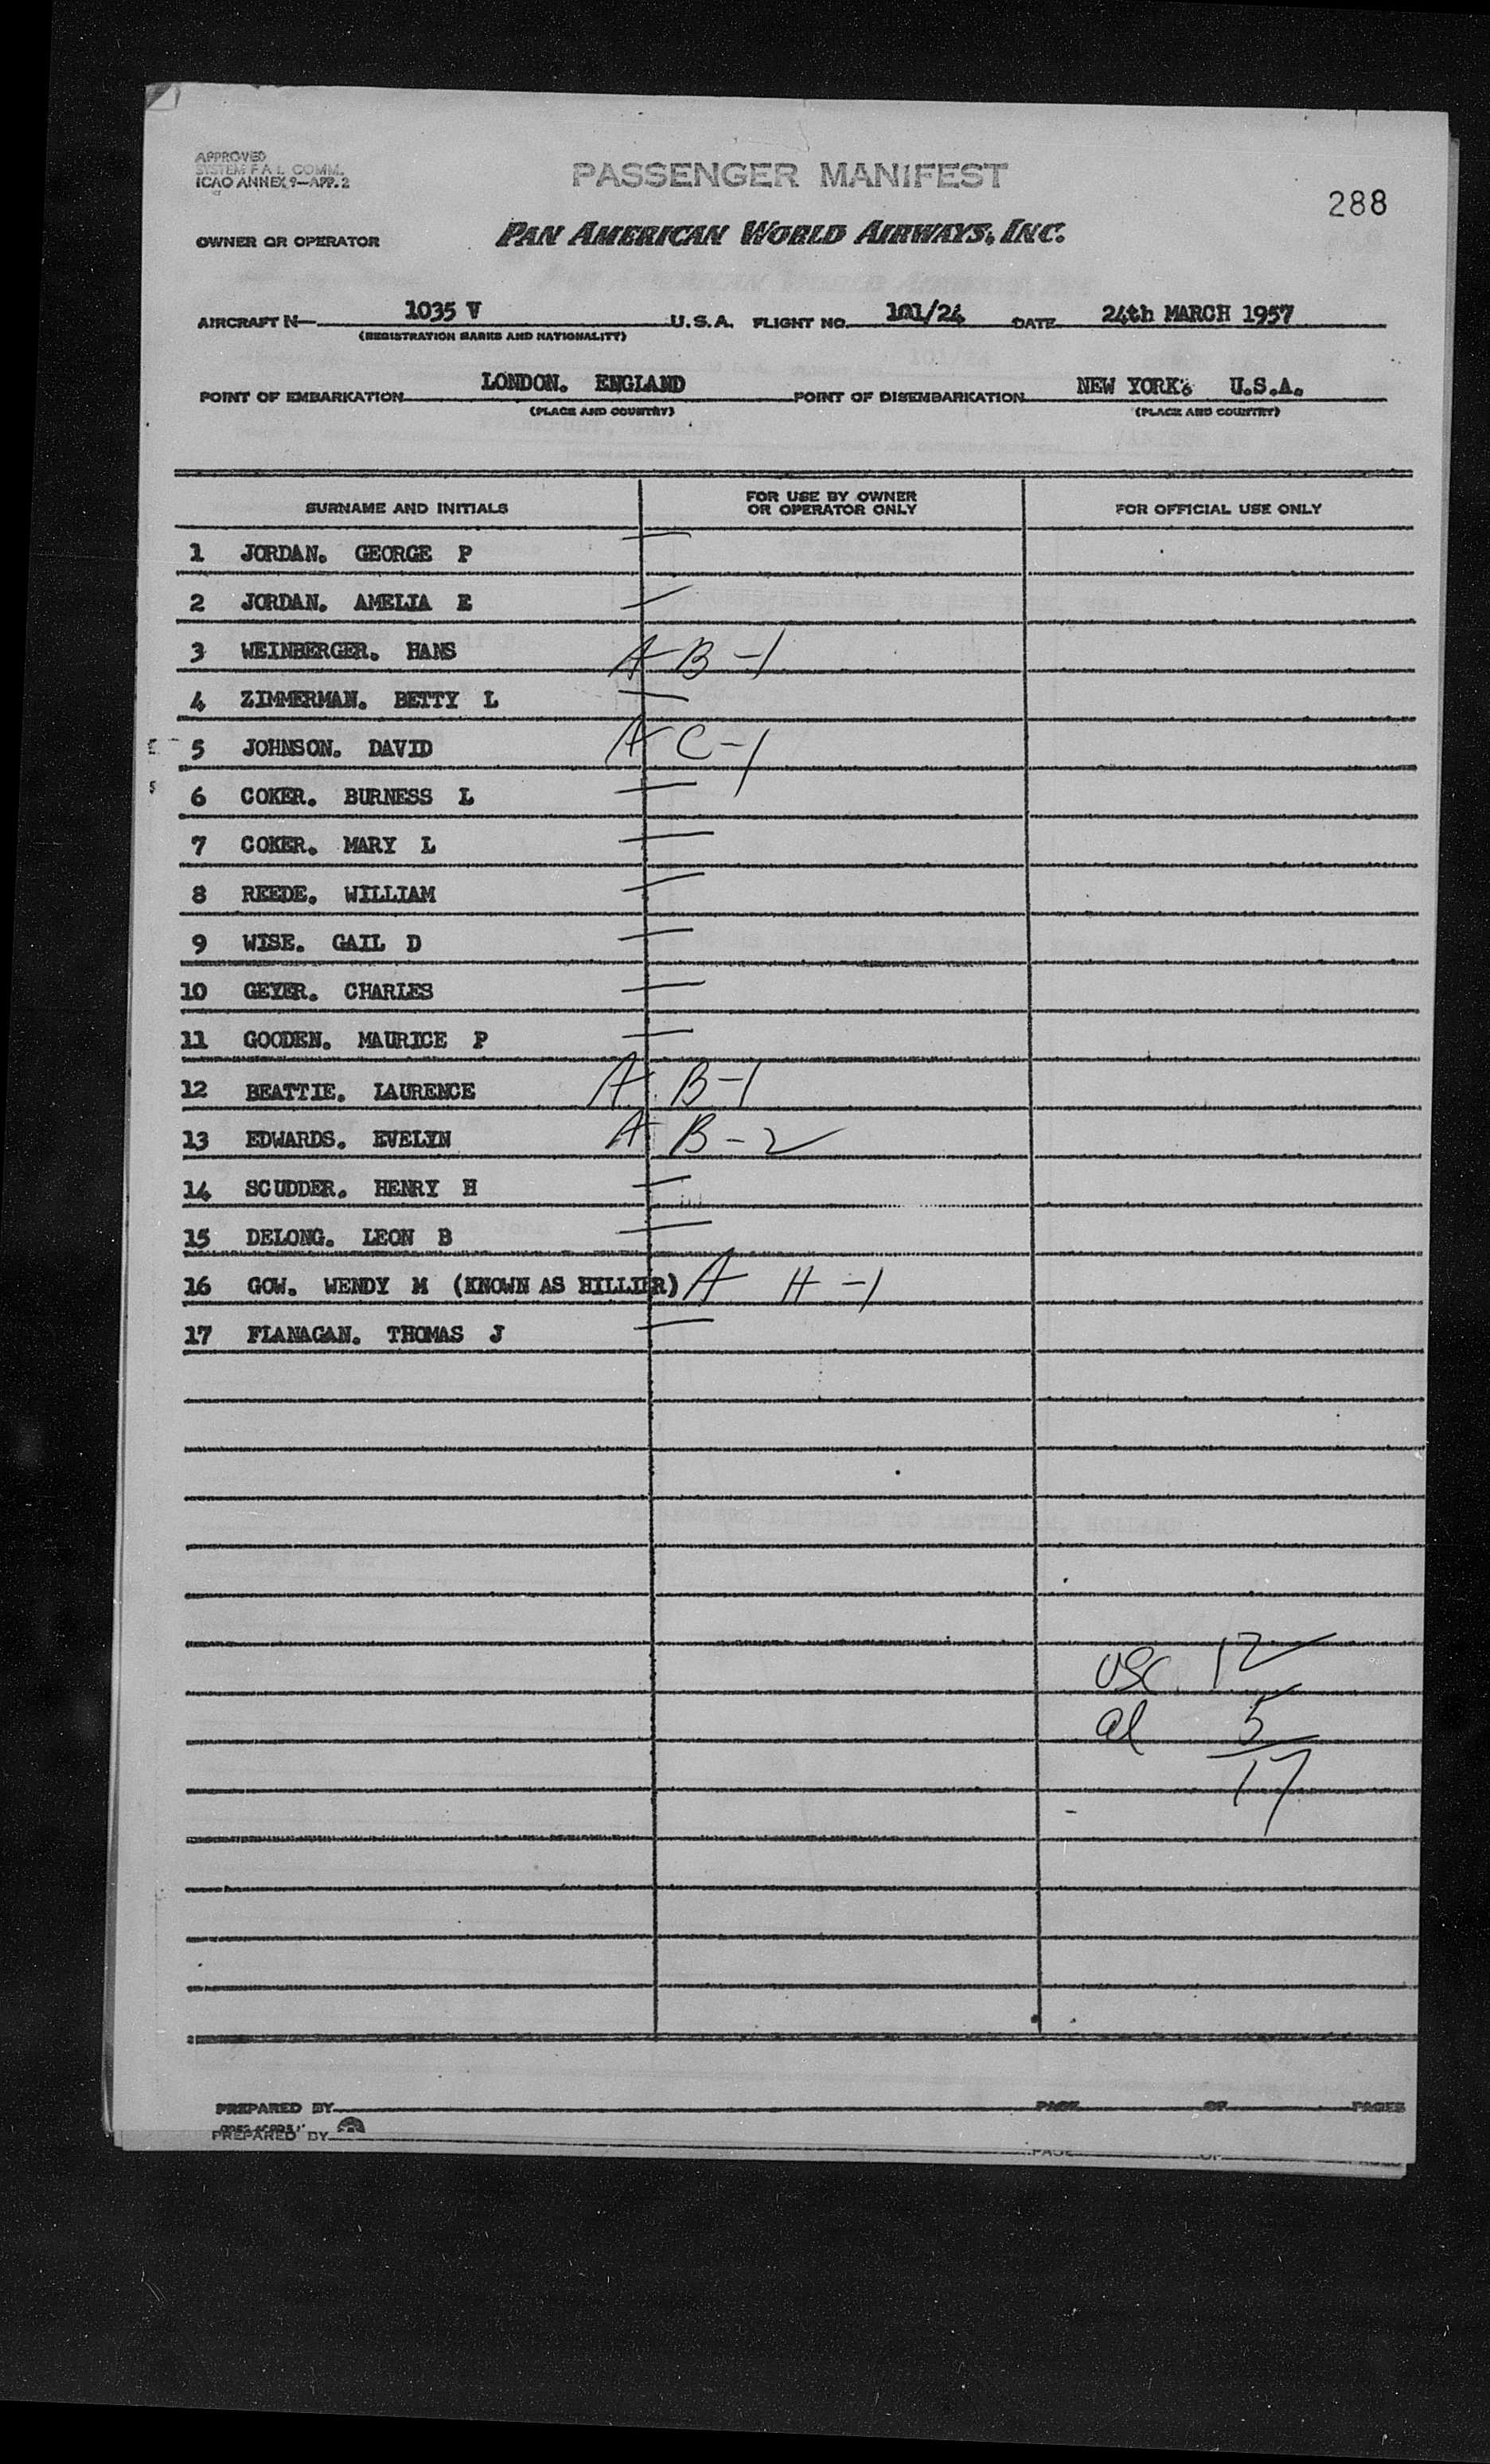 APPROVED
SYSTEM F A L COMM.
ICAO ANNEX 9—APP. 2
PASSENGER MANIFEST
288
OWNER OR OPERATOR PAN AMERICAN WORLD AIRWAYS, INC.
AIRCRAFT N— 1035 V U.S.A. FLIGHT NO. 101/24 DATE 24th MARCH 1957
(REGISTRATION MARKS AND NATIONALITY)
POINT OF EMBARKATION LONDON. ENGLAND POINT OF DISEMBARKATION NEW YORK. U.S.A.
(PLACE AND COUNTRY) (PLACE AND COUNTRY)
SURNAME AND INITIALS FOR USE BY OWNER OR OPERATOR ONLY FOR OFFICIAL USE ONLY
1 JORDAN. GEORGE P —
2 JORDAN. AMELIA E —
3 WEINBERGER. HANS A B-1
4 ZIMMERMAN. BETTY L —
5 JOHNSON. DAVID A C-1
6 COKER. BURNESS L —
7 COKER. MARY L —
8 REEDE. WILLIAM —
9 WISE. GAIL D —
10 GEYER. CHARLES —
11 GOODEN. MAURICE P —
12 BEATTIE. LAURENCE A B-1
13 EDWARDS. EVELYN A B-2
14 SCUDDER. HENRY H —
15 DELONG. LEON B —
16 GOW. WENDY M (KNOWN AS HILLIER) A H-1
17 FLANAGAN. THOMAS J —
USC 12
al 5
17
PREPARED BY PAGE OF PAGES
PREPARED BY PAGE OF